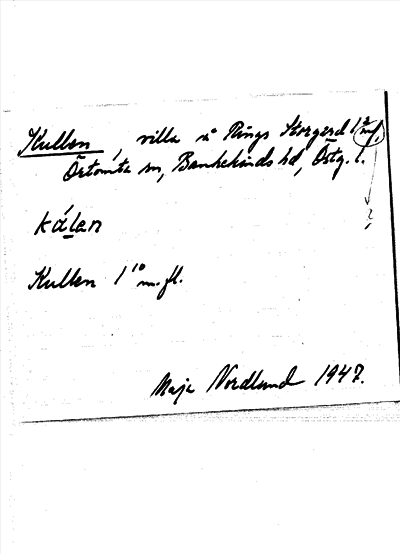 Kullen, villa å Rings Storgård 1² mfl.
Örtomta sn, Bankekinds hd, Östg. l.
?
kálan
Kullen 1¹⁰ m.fl.
Maja Nordlund 1947.